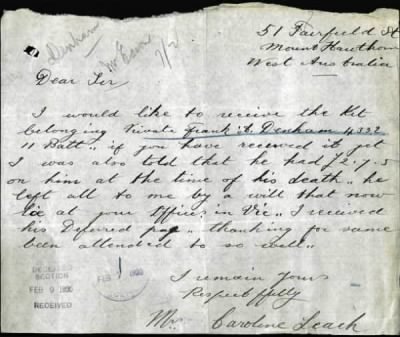 51 Fairfield St
Mount Hawthorn
West Australia
Denham
Mr Ewen
7/2
Dear Sir
I would like to receive the Kit
belonging Private Frank A. Denham 4332
11 Batt. if you have received it yet
I was also told that he had £2-7-5
on him at the time of his death. he
left all to me by a will that now
lie at your Office in Vic. I received
his Deferred pay. thanking for same
been attended to so well.
I remain Yours
Respectfully
Mrs Caroline Leach
SECTION
FEB 9 1920
RECEIVED
FEB 1920